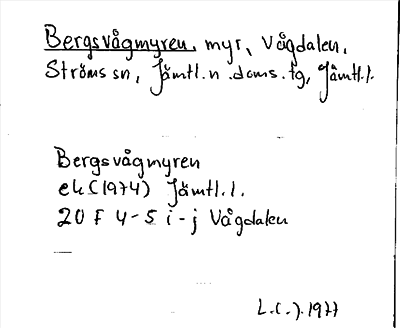 Bergsvågmyren, myr, Vågdalen,
Ströms sn, Jämtl.n.doms.tg, Jämtl.l.
Bergsvågmyren
ek (1974) Jämtl.l.
20 F 4-5 i-j Vågdalen
L.C-J.1977